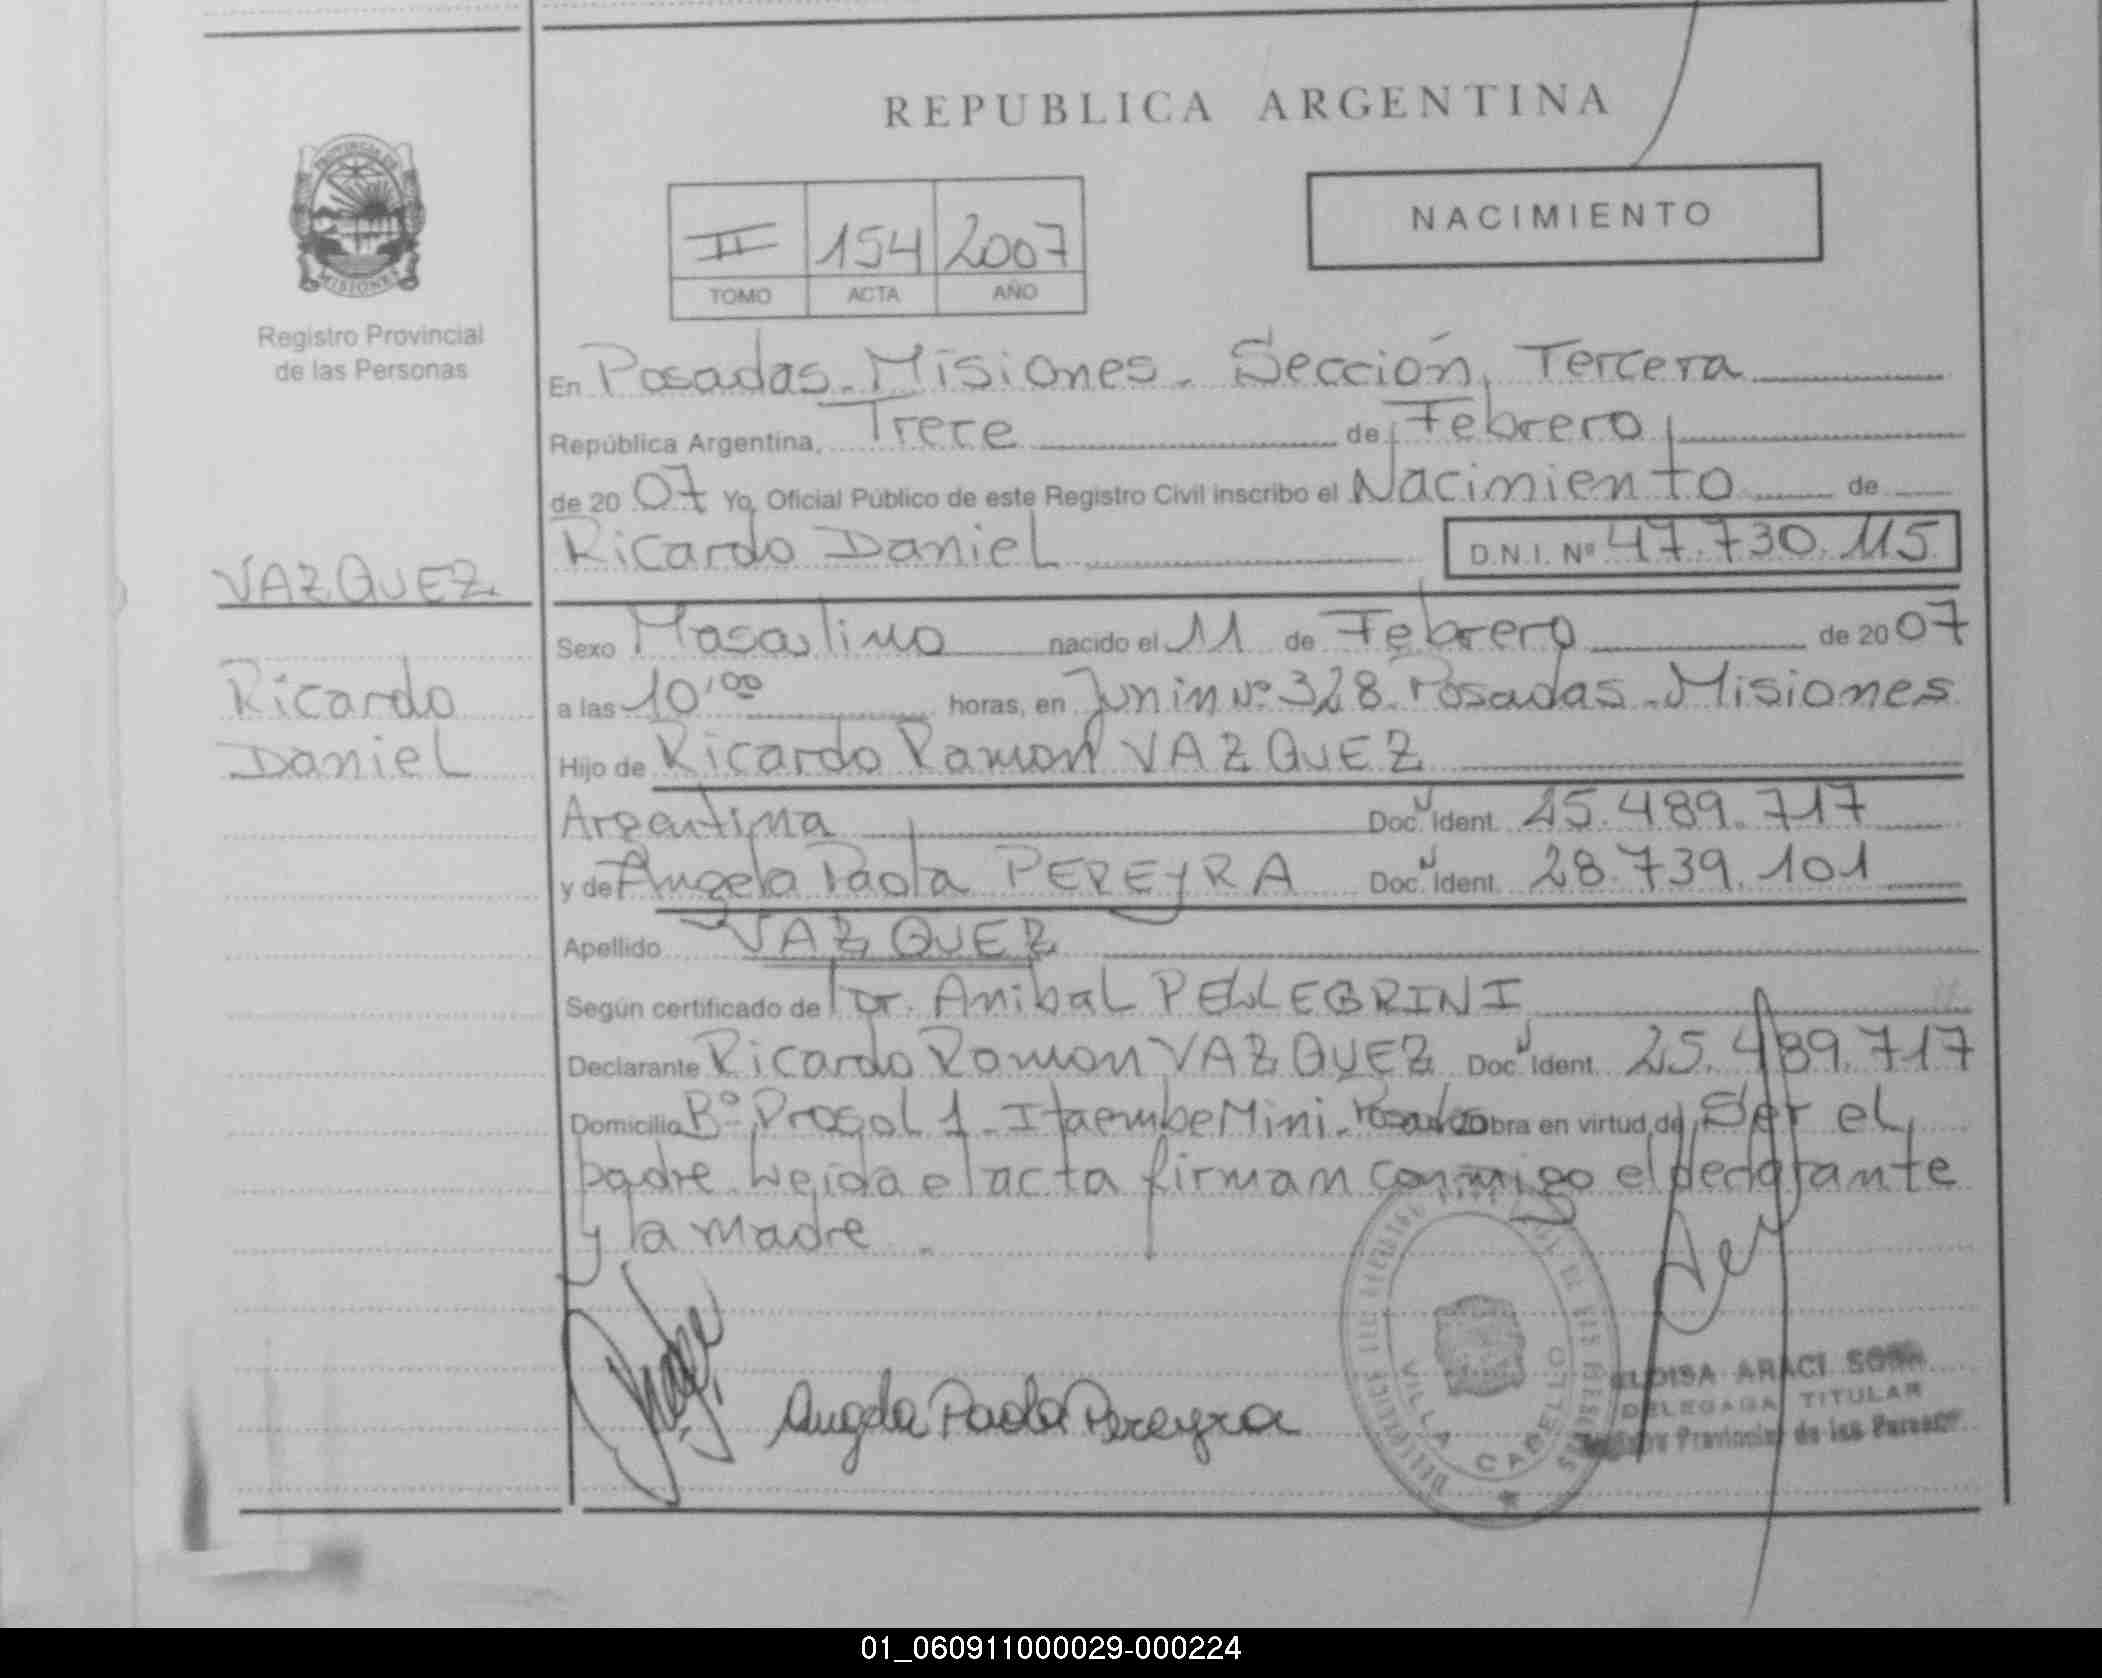 REPUBLICA ARGENTINA
PROVINCIA DE
MISIONES
Registro Provincial
de las Personas
NACIMIENTO
II 154 2007
TOMO ACTA AÑO
En Posadas - Misiones - Sección Tercera
República Argentina, Trece de Febrero
de 2007 Yo, Oficial Público de este Registro Civil inscribo el Nacimiento de
Ricardo Daniel D.N.I. Nº 47.730.115
VAZQUEZ
Ricardo
Daniel
Sexo Masculino nacido el 11 de Febrero de 2007
a las 10,00 horas, en Junin Nº 328. Posadas - Misiones
Hijo de Ricardo Ramon VAZQUEZ
Argentina Doc. Ident. 25.489.717
y de Angela Paola PEREYRA Doc. Ident. 28.739.101
Apellido VAZQUEZ
Según certificado de Dr. Anibal PELLEGRINI
Declarante Ricardo Ramon VAZQUEZ Doc. Ident. 25.489.717
Domicilio Bº Prosol 1 - Itaembe Mini - Posadas obra en virtud de Ser el
padre. Leida el acta firman conmigo el declarante
y la madre.
Angela Paola Pereyra
VILLA CABELLO
ELOISA ARACI
DELEGADA TITULAR
Registro Provincial de las Personas
01_060911000029-000224